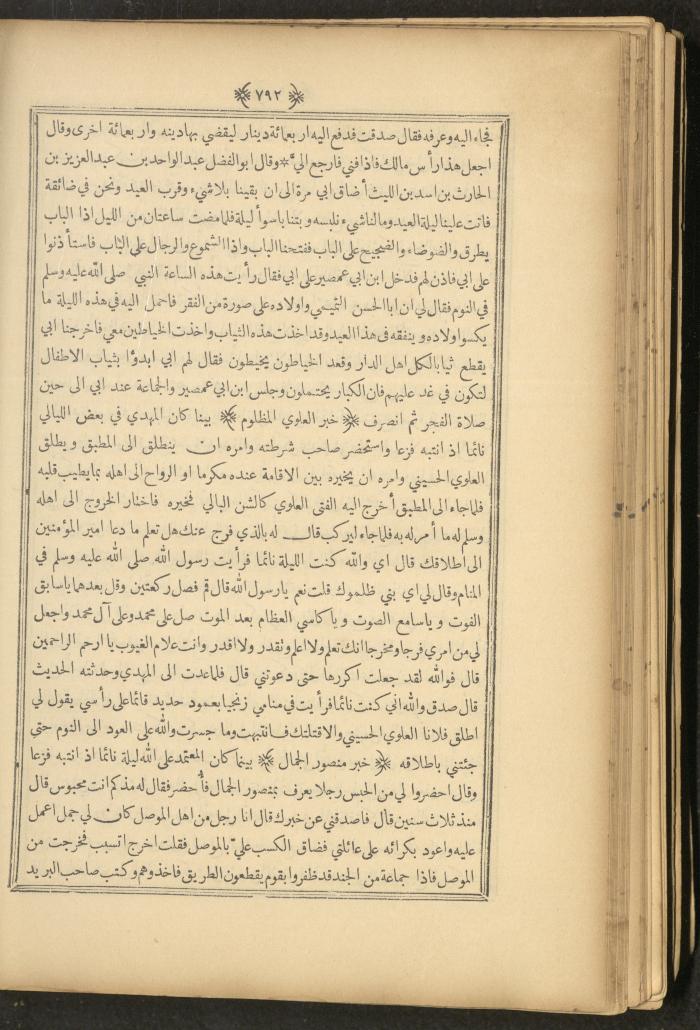 ﴿ ٧٩٢ ﴾
فجاء اليه وعرفه فقال صدقت فدفع اليه اربعمائة دينار ليقضي بهادينه واربعمائة اخرى وقال
اجعل هذا رأس مالك فاذا فني فارجع اليّ * وقال ابو الفضل عبد الواحد بن عبد العزيز بن
الحارث بن اسد بن الليث أضاق ابي مرة الى ان بقينا بلا شيء وقرب العيد ونحن في ضائقة
فاتت علينا ليلة العيد ومالنا شيء نلبسه وبتنا باسوأ ليلة فلما مضت ساعتان من الليل اذا الباب
يطرق والضوضاء والضجيج على الباب ففتحنا الباب واذا الشموع والرجال على الباب فاستأذنوا
على ابي فاذن لهم فدخل ابن ابي عمصير على ابي فقال رأيت هذه الساعة النبي صلى الله عليه وسلم
في النوم فقال لي ان ابا الحسن التميمي واولاده على صورة من الفقر فاحمل اليه في هذه الليلة ما
يكسو اولاده وينفقه في هذا العيد وقد اخذت هذه الثياب واخذت الخياطين معي فاخرجنا ابي
يقطع ثيابا لكل اهل الدار وقعد الخياطون يخيطون فقال لهم ابي ابدؤا بثياب الاطفال
لتكون في غد عليهم فان الكبار يحتملون وجلس ابن ابي عمصير والجماعة عند ابي الى حين
صلاة الفجر ثم انصرف ﴿ خبر العلوي المظلوم ﴾ بينا كان المهدي في بعض الليالي
نائما اذ انتبه فزعا واستحضر صاحب شرطته وامره ان ينطلق الى المطبق ويطلق
العلوي الحسيني وامره ان يخيره بين الاقامة عنده مكرما او الرواح الى اهله بما يطيب قلبه
فلما جاء الى المطبق أخرج اليه الفتى العلوي كالشن البالي فخيره فاختار الخروج الى اهله
وسلم له ما أمر له به فلما جاء ليركب قال له بالذي فرج عنك هل تعلم ما دعا امير المؤمنين
الى اطلاقك قال اي والله كنت الليلة نائما فرأيت رسول الله صلى الله عليه وسلم في
المنام وقال لي اي بني ظلموك قلت نعم يا رسول الله قال قم فصل ركعتين وقل بعدهما يا سابق
الفوت ويا سامع الصوت ويا كاسي العظام بعد الموت صل على محمد وعلى آل محمد واجعل
لي من امري فرجا ومخرجا انك تعلم ولا اعلم وتقدر ولا اقدر وانت علام الغيوب يا ارحم الراحمين
قال فوالله لقد جعلت اكررها حتى دعوتني قال فلما عدت الى المهدي وحدثته الحديث
قال صدق والله اني كنت نائما فرأيت في منامي زنجيا بعمود حديد قائما على رأسي يقول لي
اطلق فلانا العلوي الحسيني والا قتلتك فانتبهت وما جسرت والله على العود الى النوم حتى
جئتني باطلاقه ﴿ خبر منصور الجمال ﴾ بينما كان المعتمد على الله ليلة نائما اذ انتبه فزعا
وقال احضروا لي من الحبس رجلا يعرف بمنصور الجمال فأُحضر فقال له مذ كم انت محبوس قال
منذ ثلاث سنين قال فاصدقني عن خبرك قال انا رجل من اهل الموصل كان لي جمل اعمل
عليه واعود بكرائه على عائلتي فضاق الكسب عليّ بالموصل فقلت اخرج اتسبب فخرجت من
الموصل فاذا جماعة من الجند قد ظفروا بقوم يقطعون الطريق فاخذوهم وكتب صاحب البريد